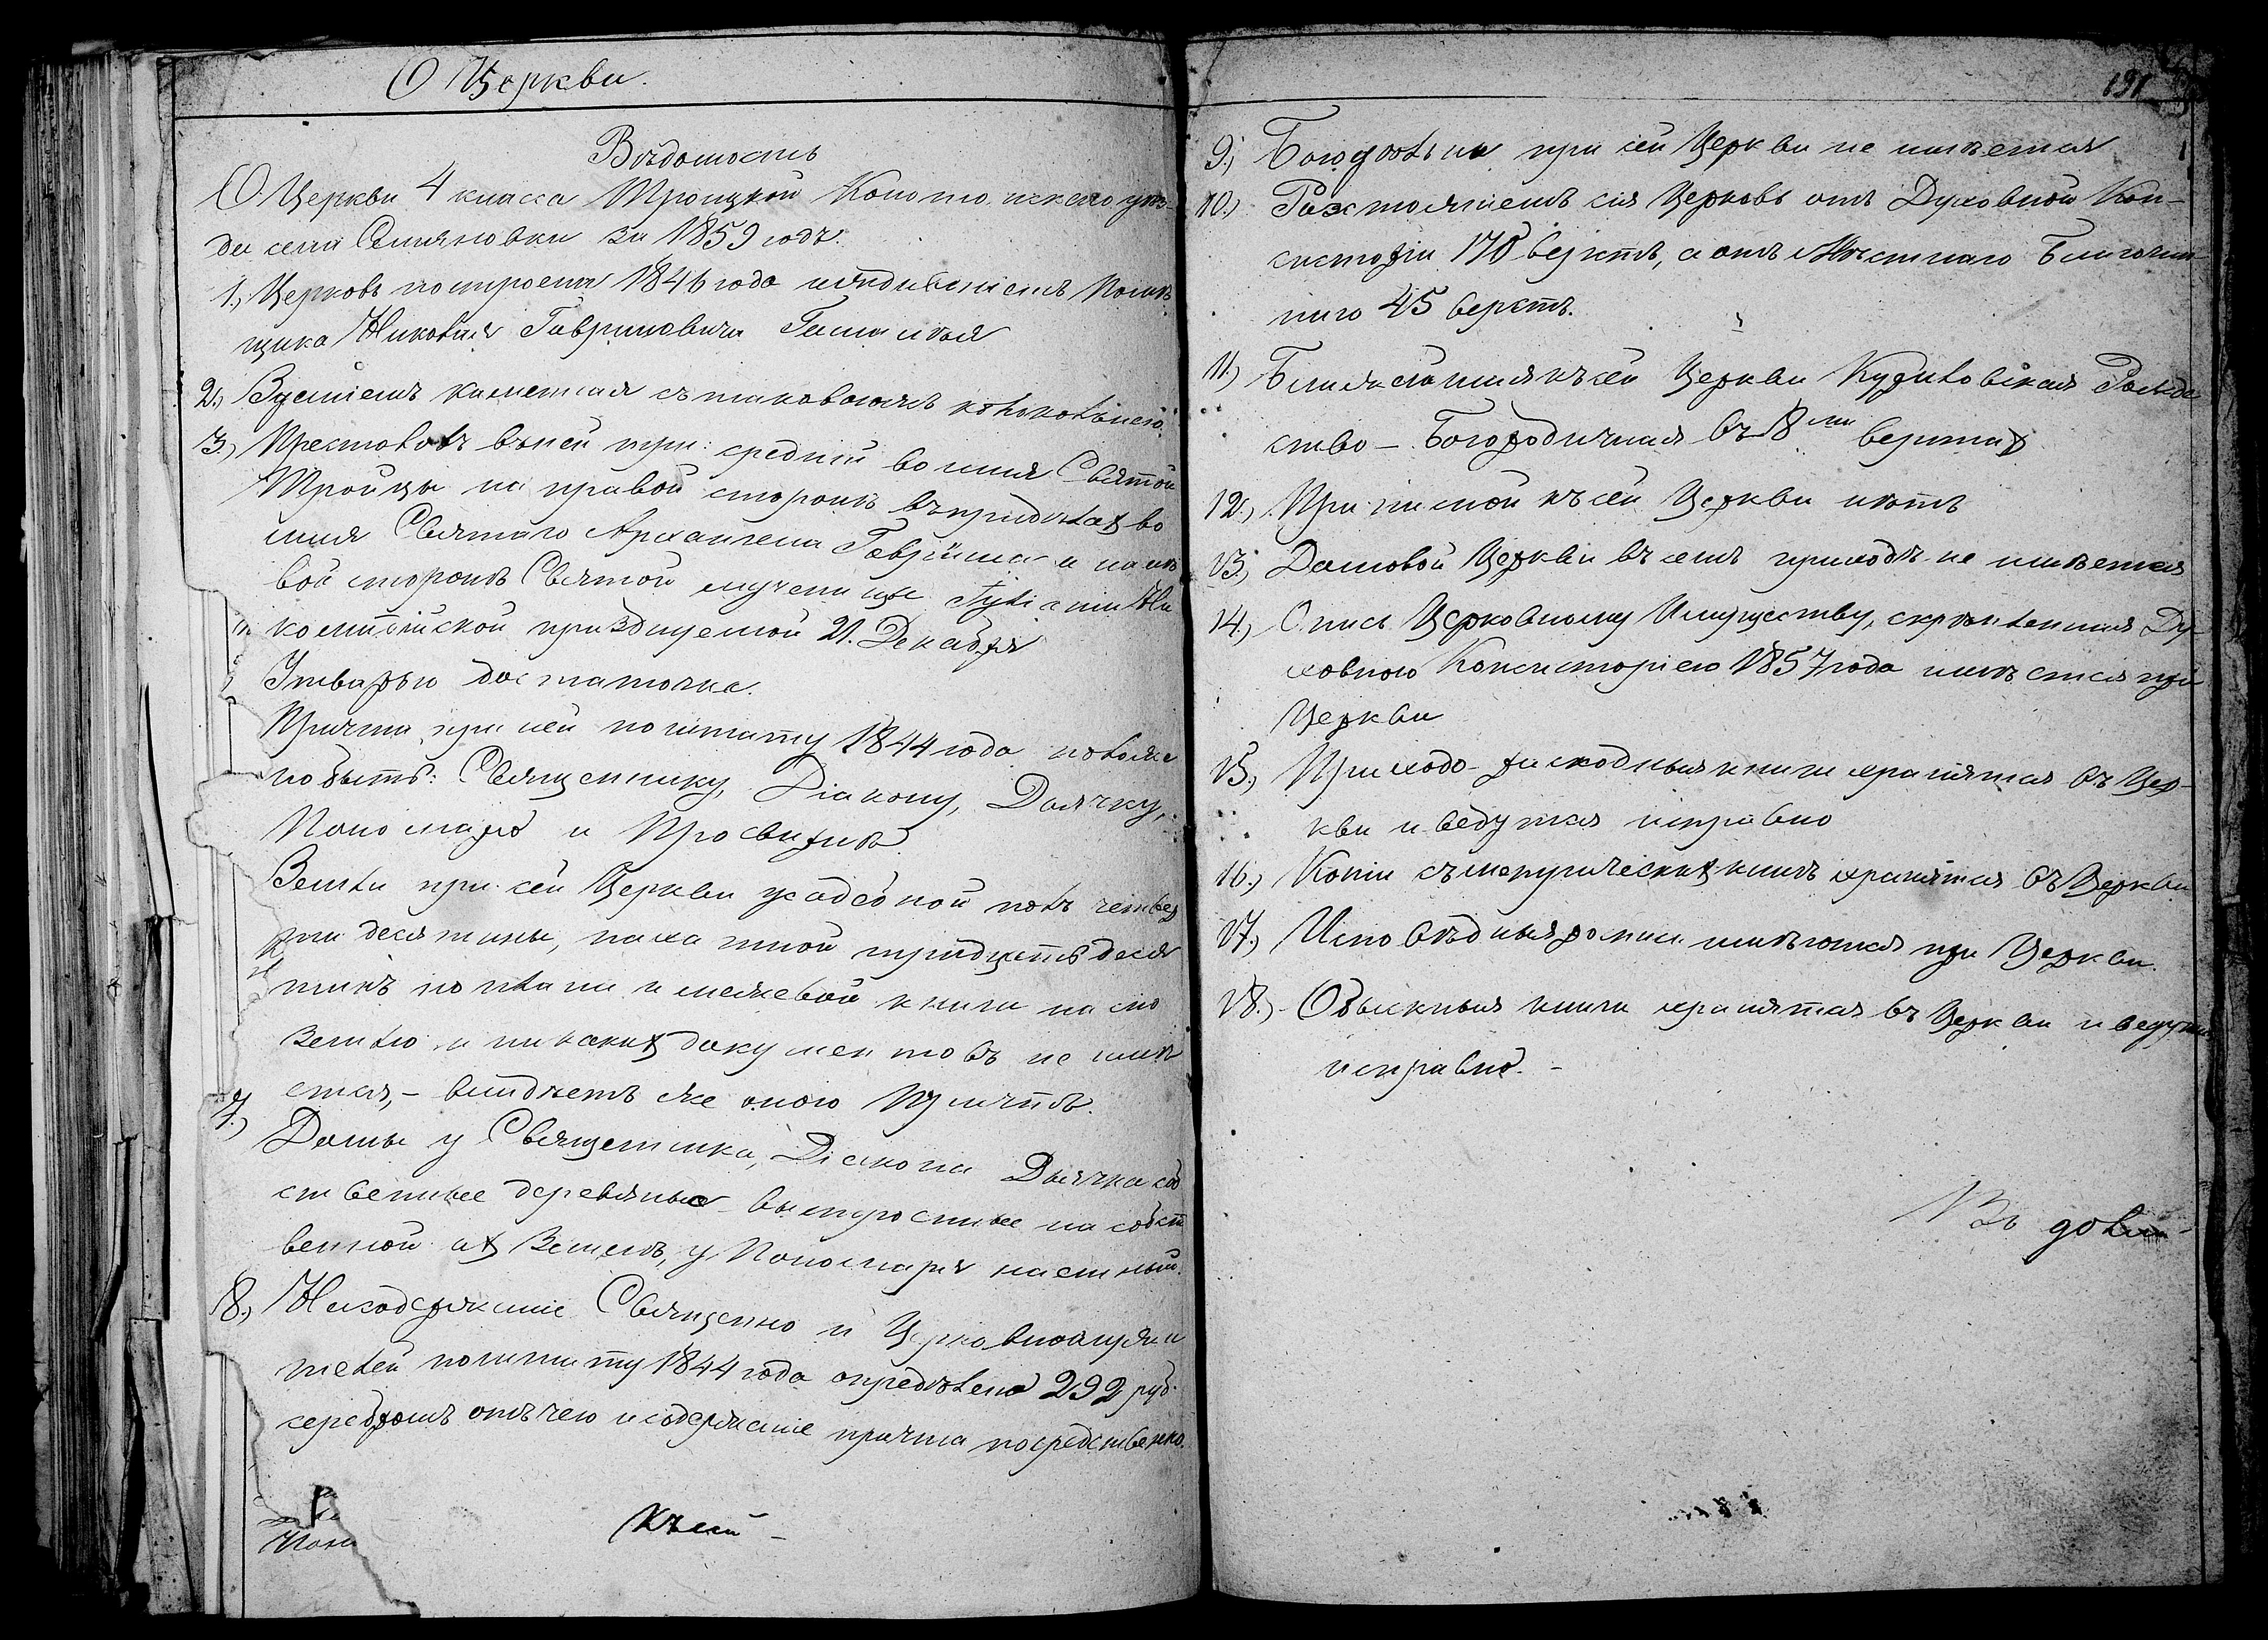 О Церкви.
Вѣдомость
О Церкви 4 класса Троицкой Конотопскаго уѣз-
да села Семяновки за 1859 годъ.
1., Церковь построена 1846 года иждивеніемъ Помѣ
щика Николая Гавриловича
2., Зданіемъ каменная съ таковоюжъ колокольнею.
3., Престоловъ въ ней три: средній во имя Святой
Тройцы на правой сторонѣ въ придѣлахъ во
имя Святаго Архангела Гавріила и на лѣ
вой сторонѣ Святой мученицы Іуліаніи Ни
комидійской празднуемой 21. Декабря
Утварью достаточна.
Причта при ней по штату 1844 года положе
но быть: Священнику, Діакону, Дьячку,
Пономарю и Просвирнѣ
Земли при сей Церкви усадебной полъ четвер
ти десятины, пахатной тридцать деся
тинъ но плана и межевой книги на сію
землю и никакихъ документовъ не имѣ
ется, – владѣетъ же оною Причтъ.
7.) Домы у Священника, Діакона Дьячка соб
ственные деревяные выстроеные на собст
венной ихъ землѣ, у Пономаря наемный.
8., На содержаніе Священно и Церковнослужи
телей по штату 1844 года опредѣлено 292 руб.
серебромъ отъ чего и содержаніе причта посредственно.
Къ сей –
191
9., Богодѣльни при сей Церкви не имѣется
10.) Разстояніемъ сія Церковь отъ Духовной Кон-
систоріи 170 верстъ, а отъ Мѣстнаго Благочин
наго 45 верстъ.
11.) Ближайшая къ сей Церкви Рожде
ство – Богородичная въ 8ми верстахъ
12.) Приписной къ сей Церкви нѣтъ
13.) Домовой Церкви въ семъ приходѣ не имѣется
14.) Опись Церковному Имуществу, скрѣпленная Ду-
ховною Консисторіею 1857 года имѣется при
Церкви
15.) Приходо-расходныя книги хранятся въ Цер-
кви и ведутся исправно
16.) Копіи съ метрическихъ книгъ хранятся въ Церкви
17.) Исповѣдныя росписи имѣются при Церкви.
18.) Обыскныя книги хранятся въ Церкви и ведутся
исправно. –